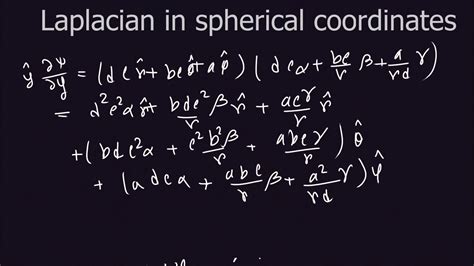 Laplacian in spherical coordinates
ŷ ∂ψ/∂y = (d c r̂ + b c θ̂ + a φ̂) ( d c α + bc/r β + a/rd γ )
= d²c² α r̂ + bdc²β/r r̂ + acγ/r r̂
+ ( b d c² α + c²b²β/r + abcγ/rd ) θ̂
+ ( a d c α + abc/r β + a²/rd γ ) φ̂